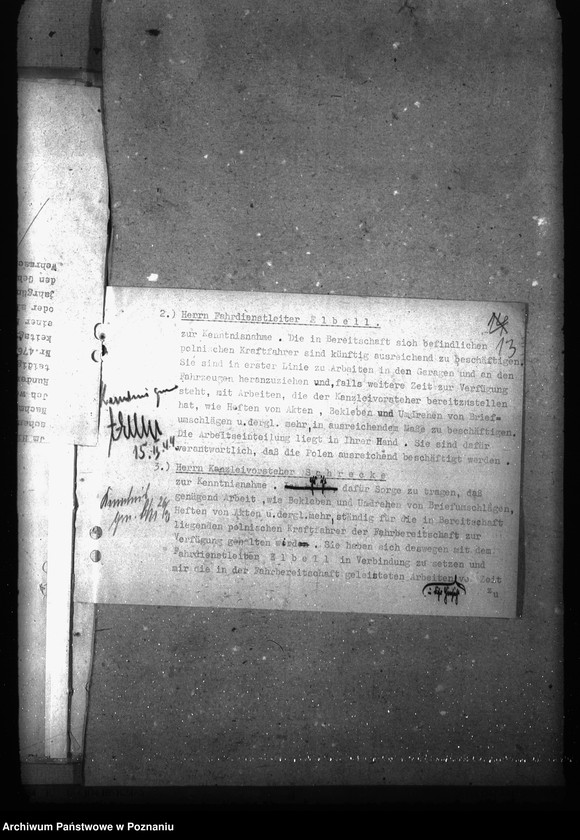 2.) Herrn Fahrdienstleiter E l b e l l .
zur Kenntnisnahme . Die in Bereitschaft sich befindlichen
polnischen Kraftfahrer sind künftig ausreichend zu beschäftigen.
Sie sind in erster Linie zu Arbeiten in den Garagen und an den
Fahrzeugen heranzuziehen und, falls weitere Zeit zur Verfügung
steht, mit Arbeiten, die der Kanzleivorsteher bereitzustellen
hat, wie Heften von Akten , Bekleben und Umdrehen von Brief-
umschlägen u.dergl. mehr, in ausreichendem Maße zu beschäftigen.
Die Arbeitseinteilung liegt in Ihrer Hand . Sie sind dafür
verantwortlich, daß die Polen ausreichend beschäftigt werden .
15.
3.) Herrn Kanzleivorsteher S c h r e c k e
zur Kenntnisnahme . dafür Sorge zu tragen, daß
genügend Arbeit , wie Bekleben und Umdrehen von Briefumschlägen,
Heften von Akten u.dergl.mehr, ständig für die in Bereitschaft
liegenden polnischen Kraftfahrer der Fahrbereitschaft zur
Verfügung gehalten . Sie haben sich deswegen mit dem
Fahrdienstleiter E l b e l l in Verbindung zu setzen und
mir die in der Fahrbereitschaft geleisteten Arbeiten Zeit
zu
13
Wehrmac
den Geb
jahrgän
oder
einer
keits
Nr.476
teidig
Hunder
Joh.
Nachm
schon
Im
Archiwum Państwowe w Poznaniu